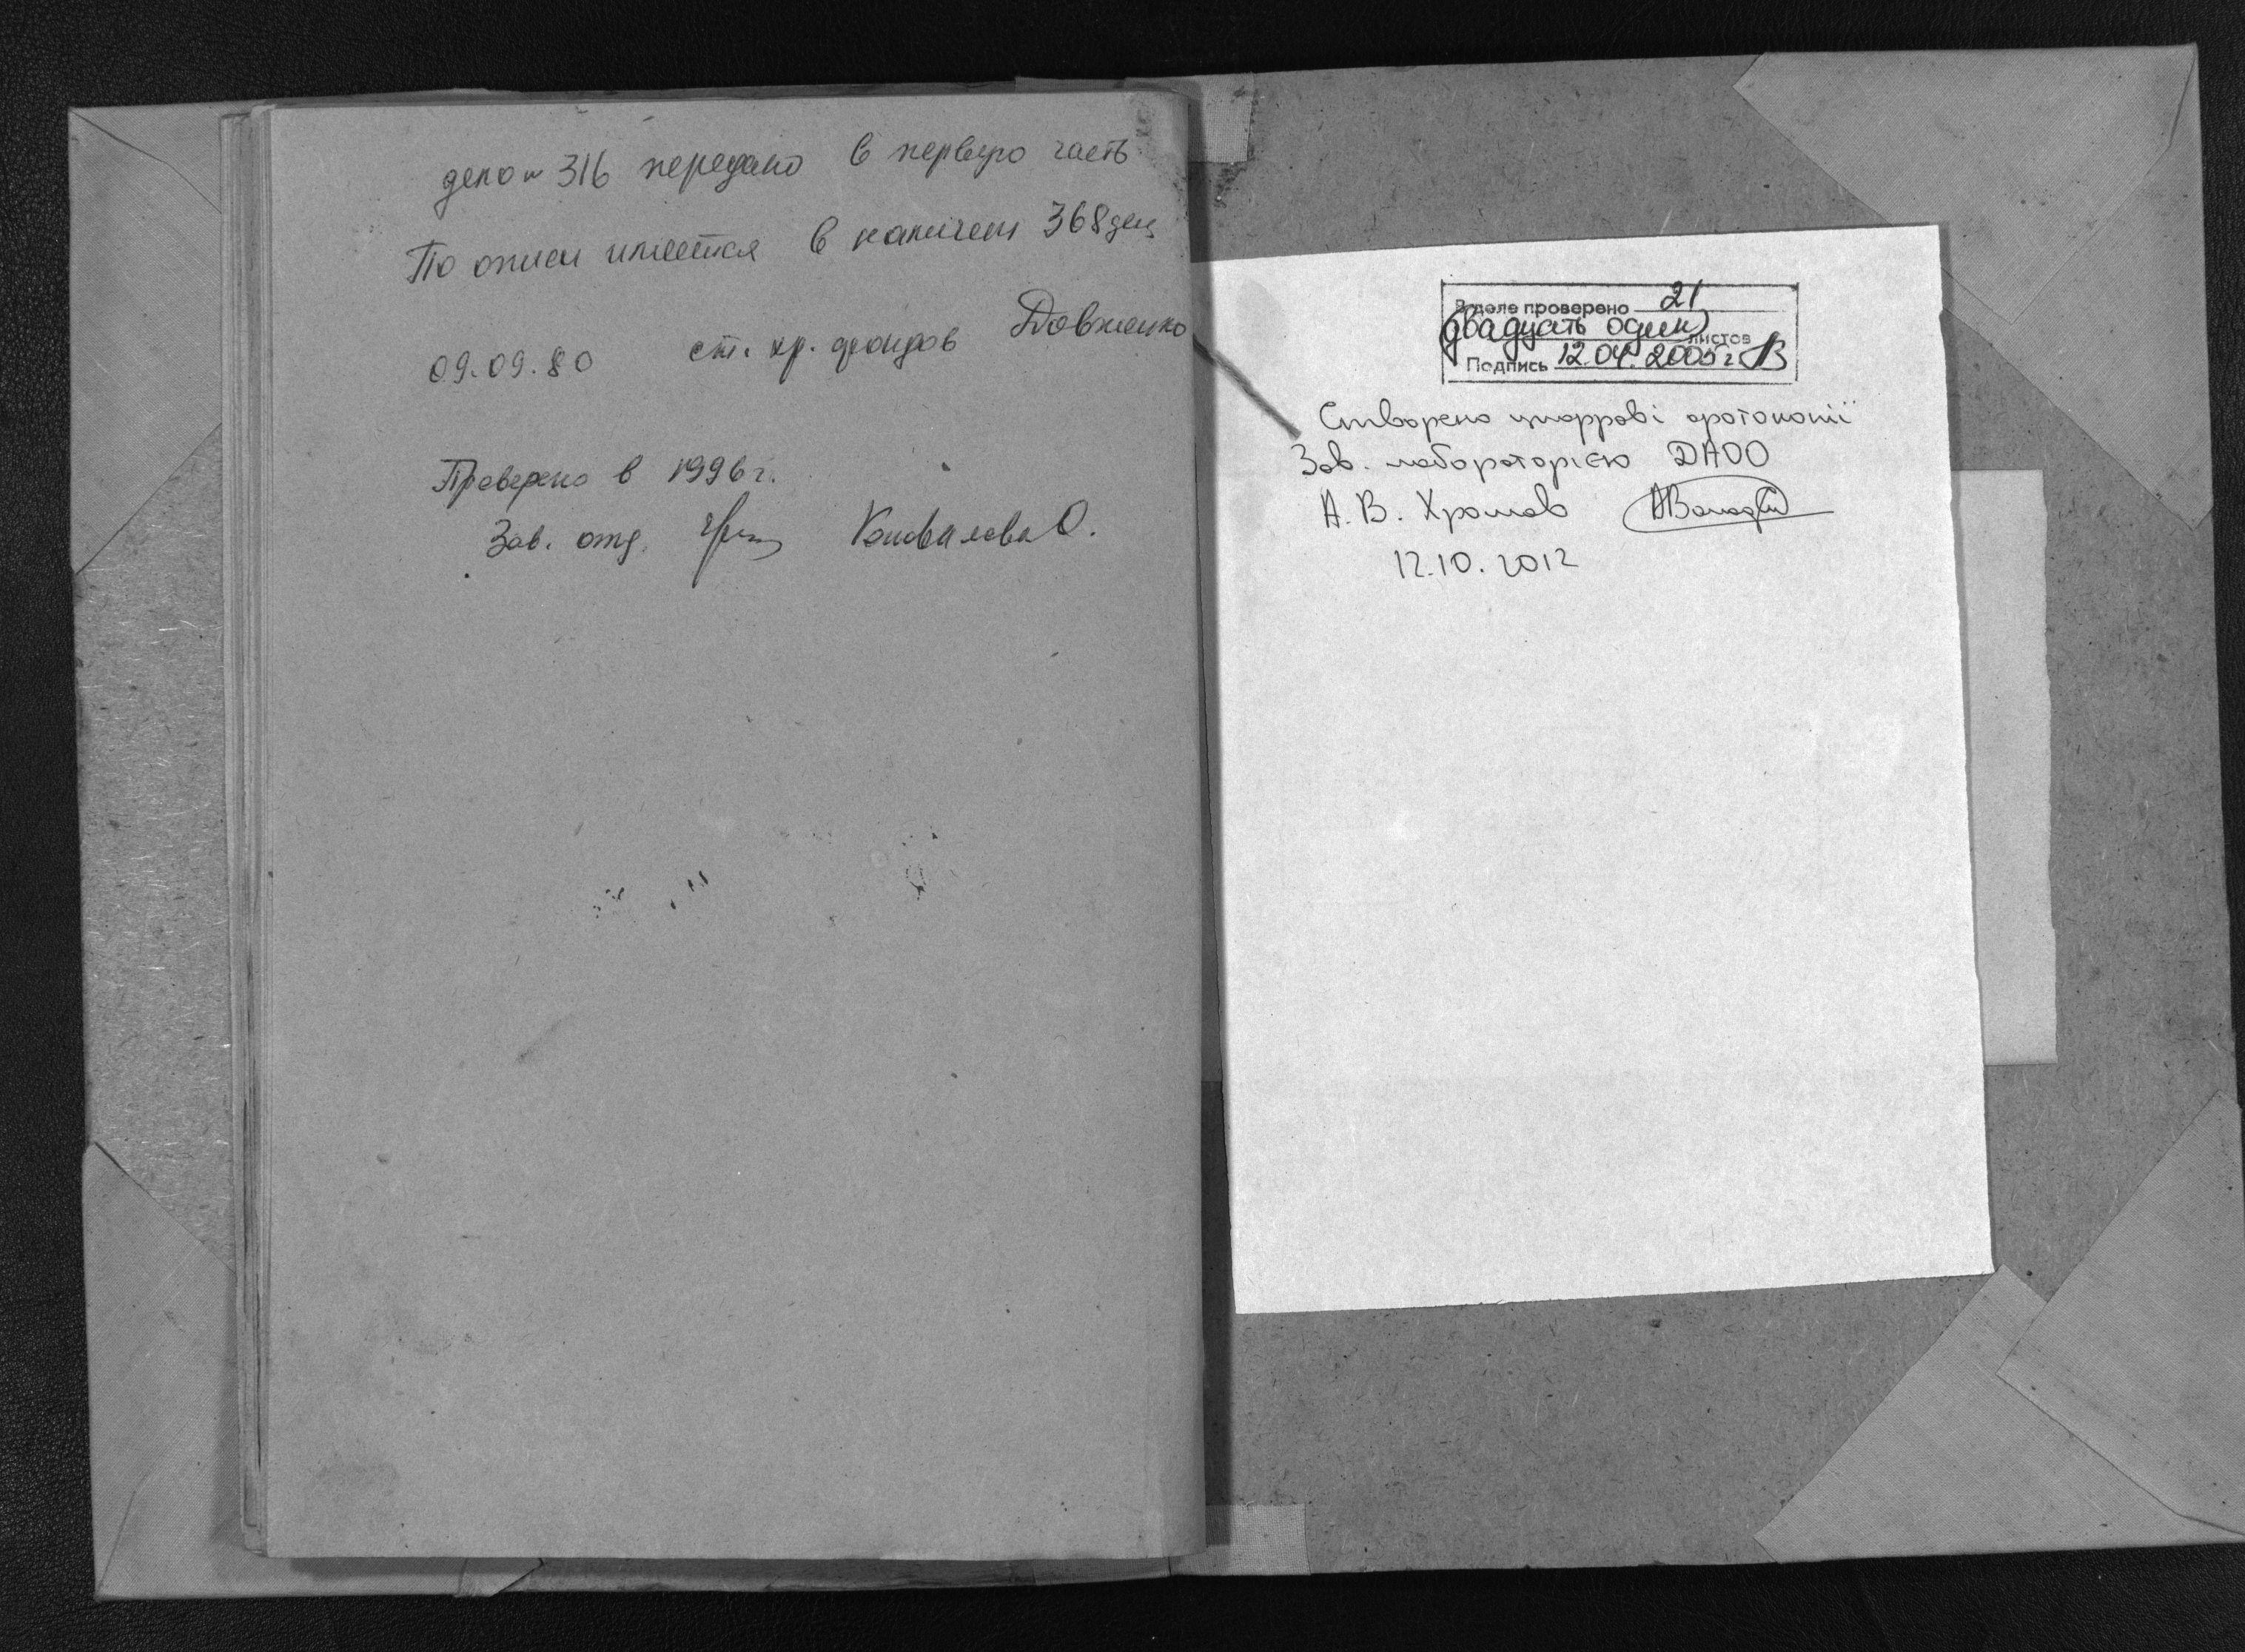 дело № 316 передано в первую часть
По описи имеется в наличии 368 дел
09.09.80 ст. хр. фондов Довженко
Проверено в 1996 г.
Зав. отд. Коновалова О.
В деле проверено 21
(двадцать один) листов
Подпись 12.04.2005 г.
Створено цифрові фотокопії
Зав. лабораторією ДАОО
А. В. Хромов
12.10.2012